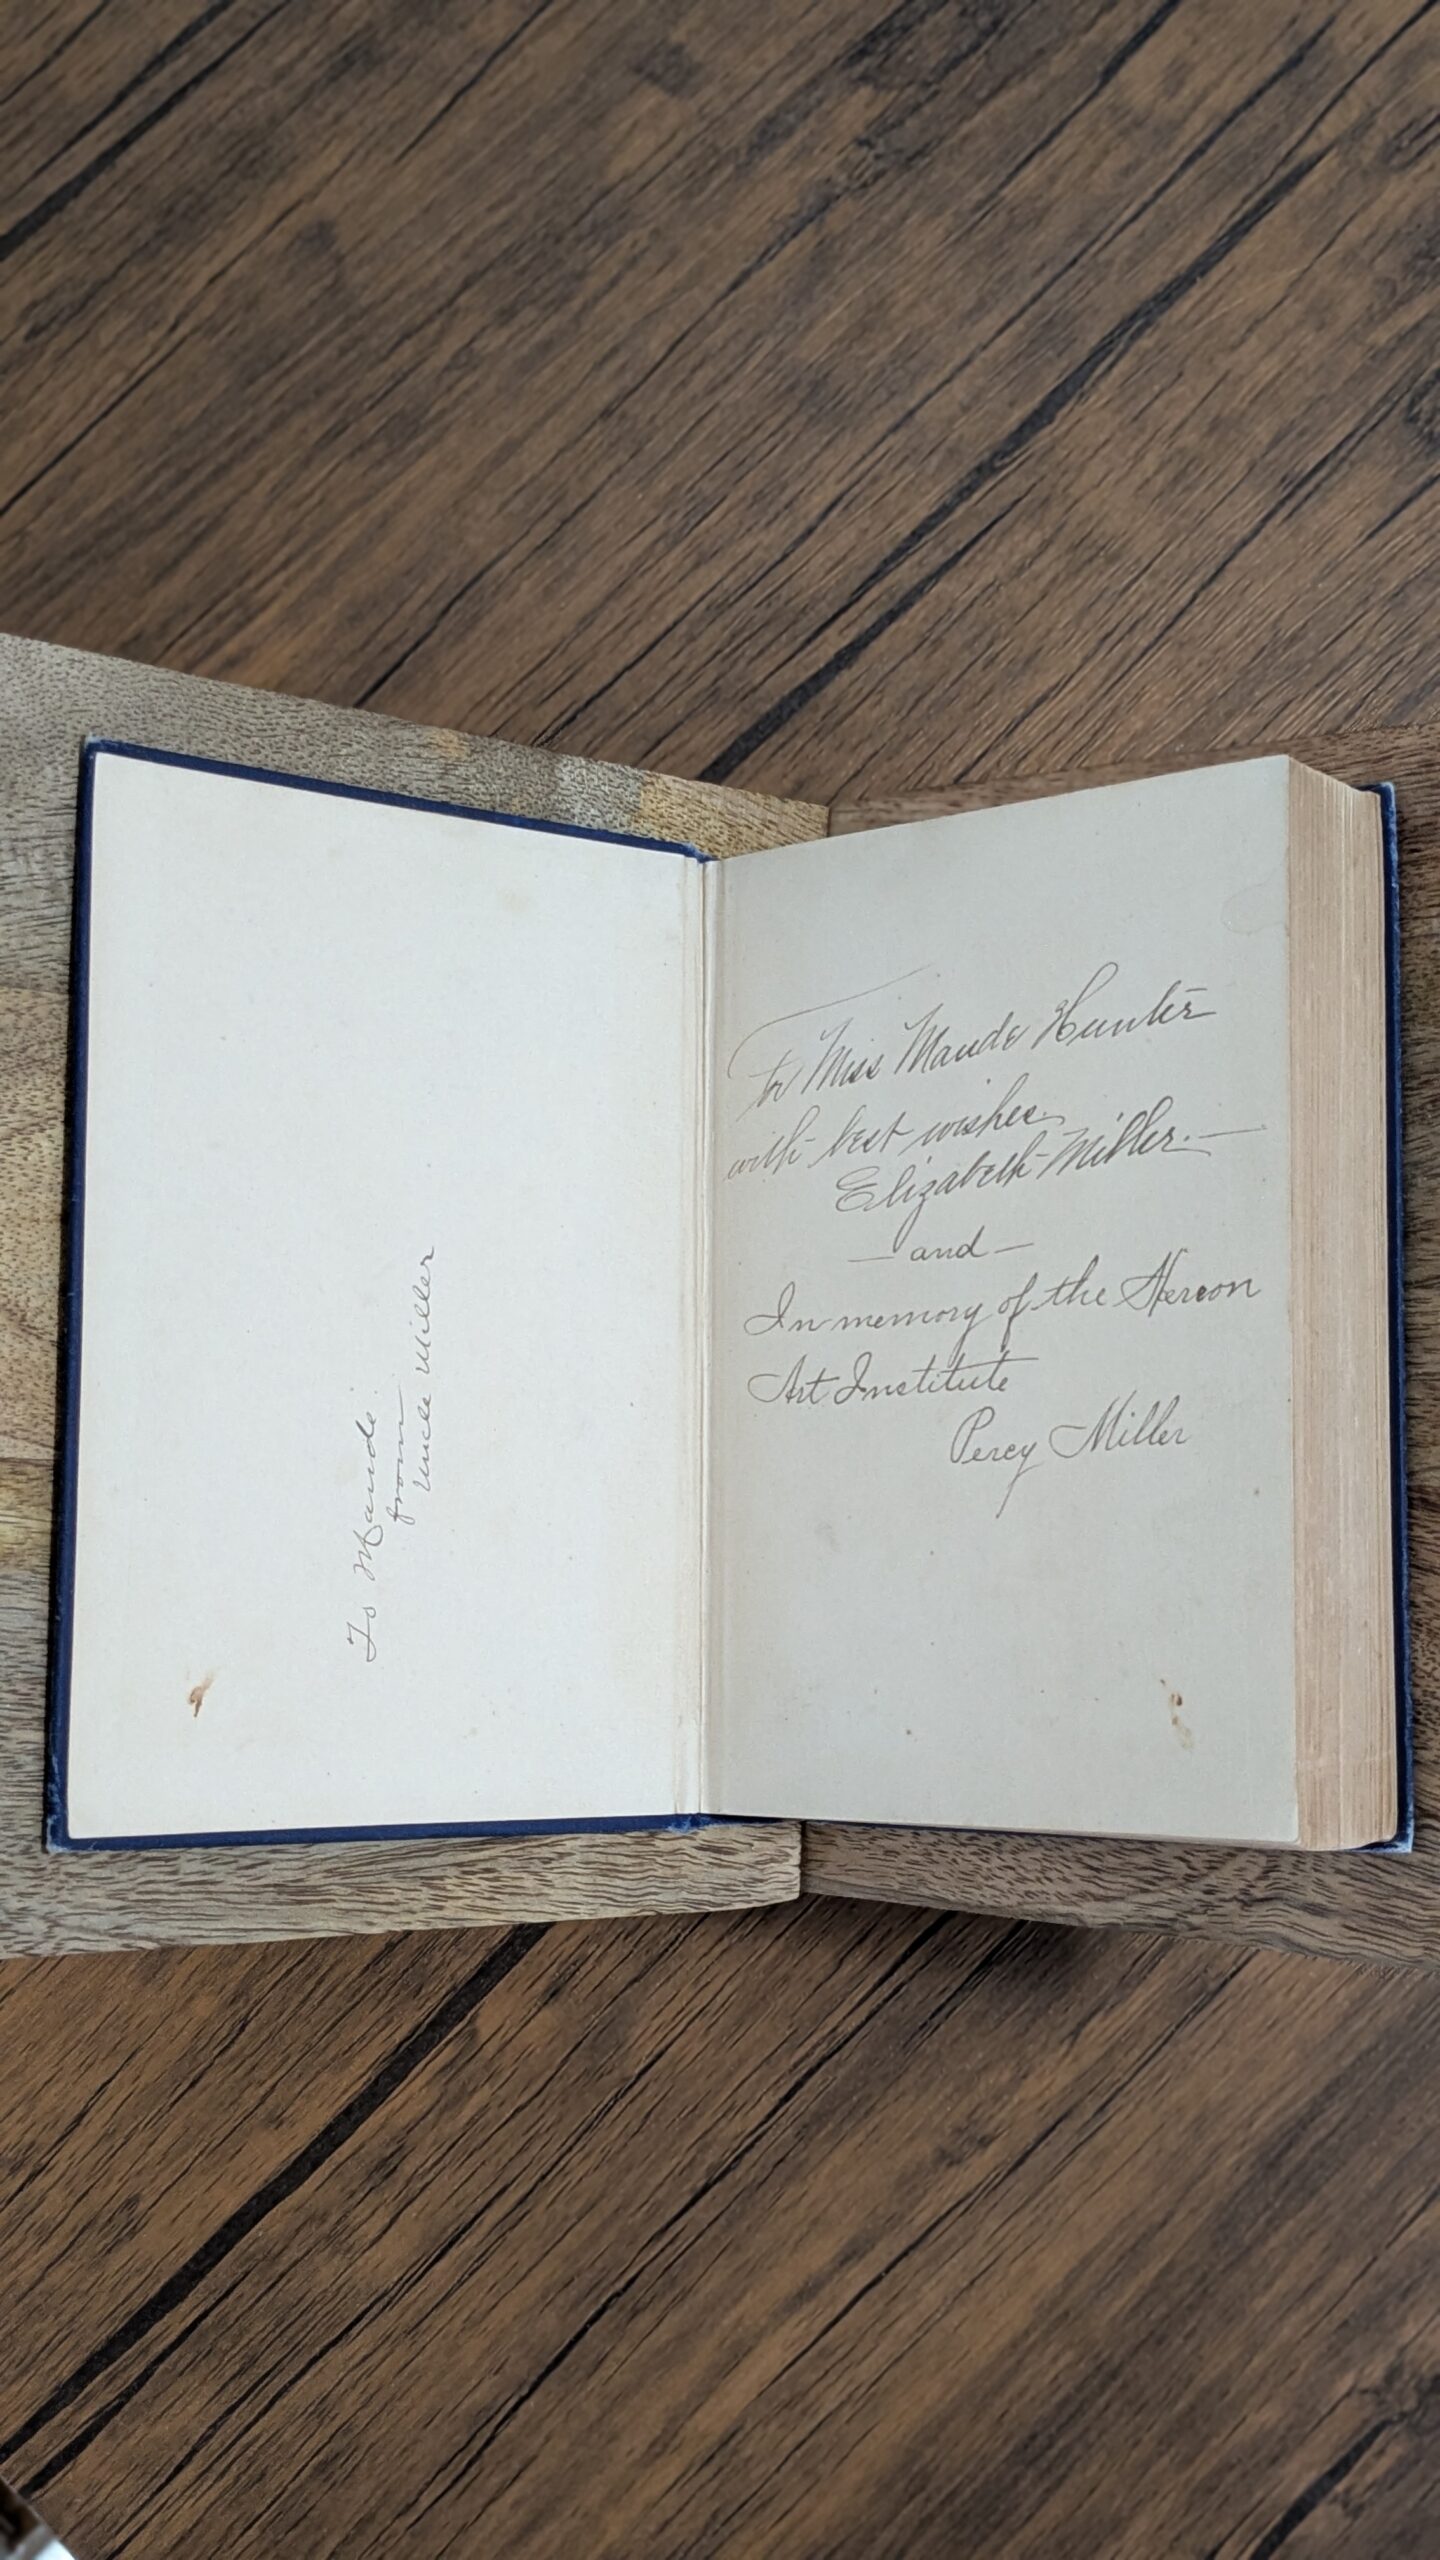 To Maude
from
Uncle Miller
To Miss Maude Hunter
with best wishes.
Elizabeth Miller. —
— and —
In memory of the Herron
Art Institute
Percy Miller